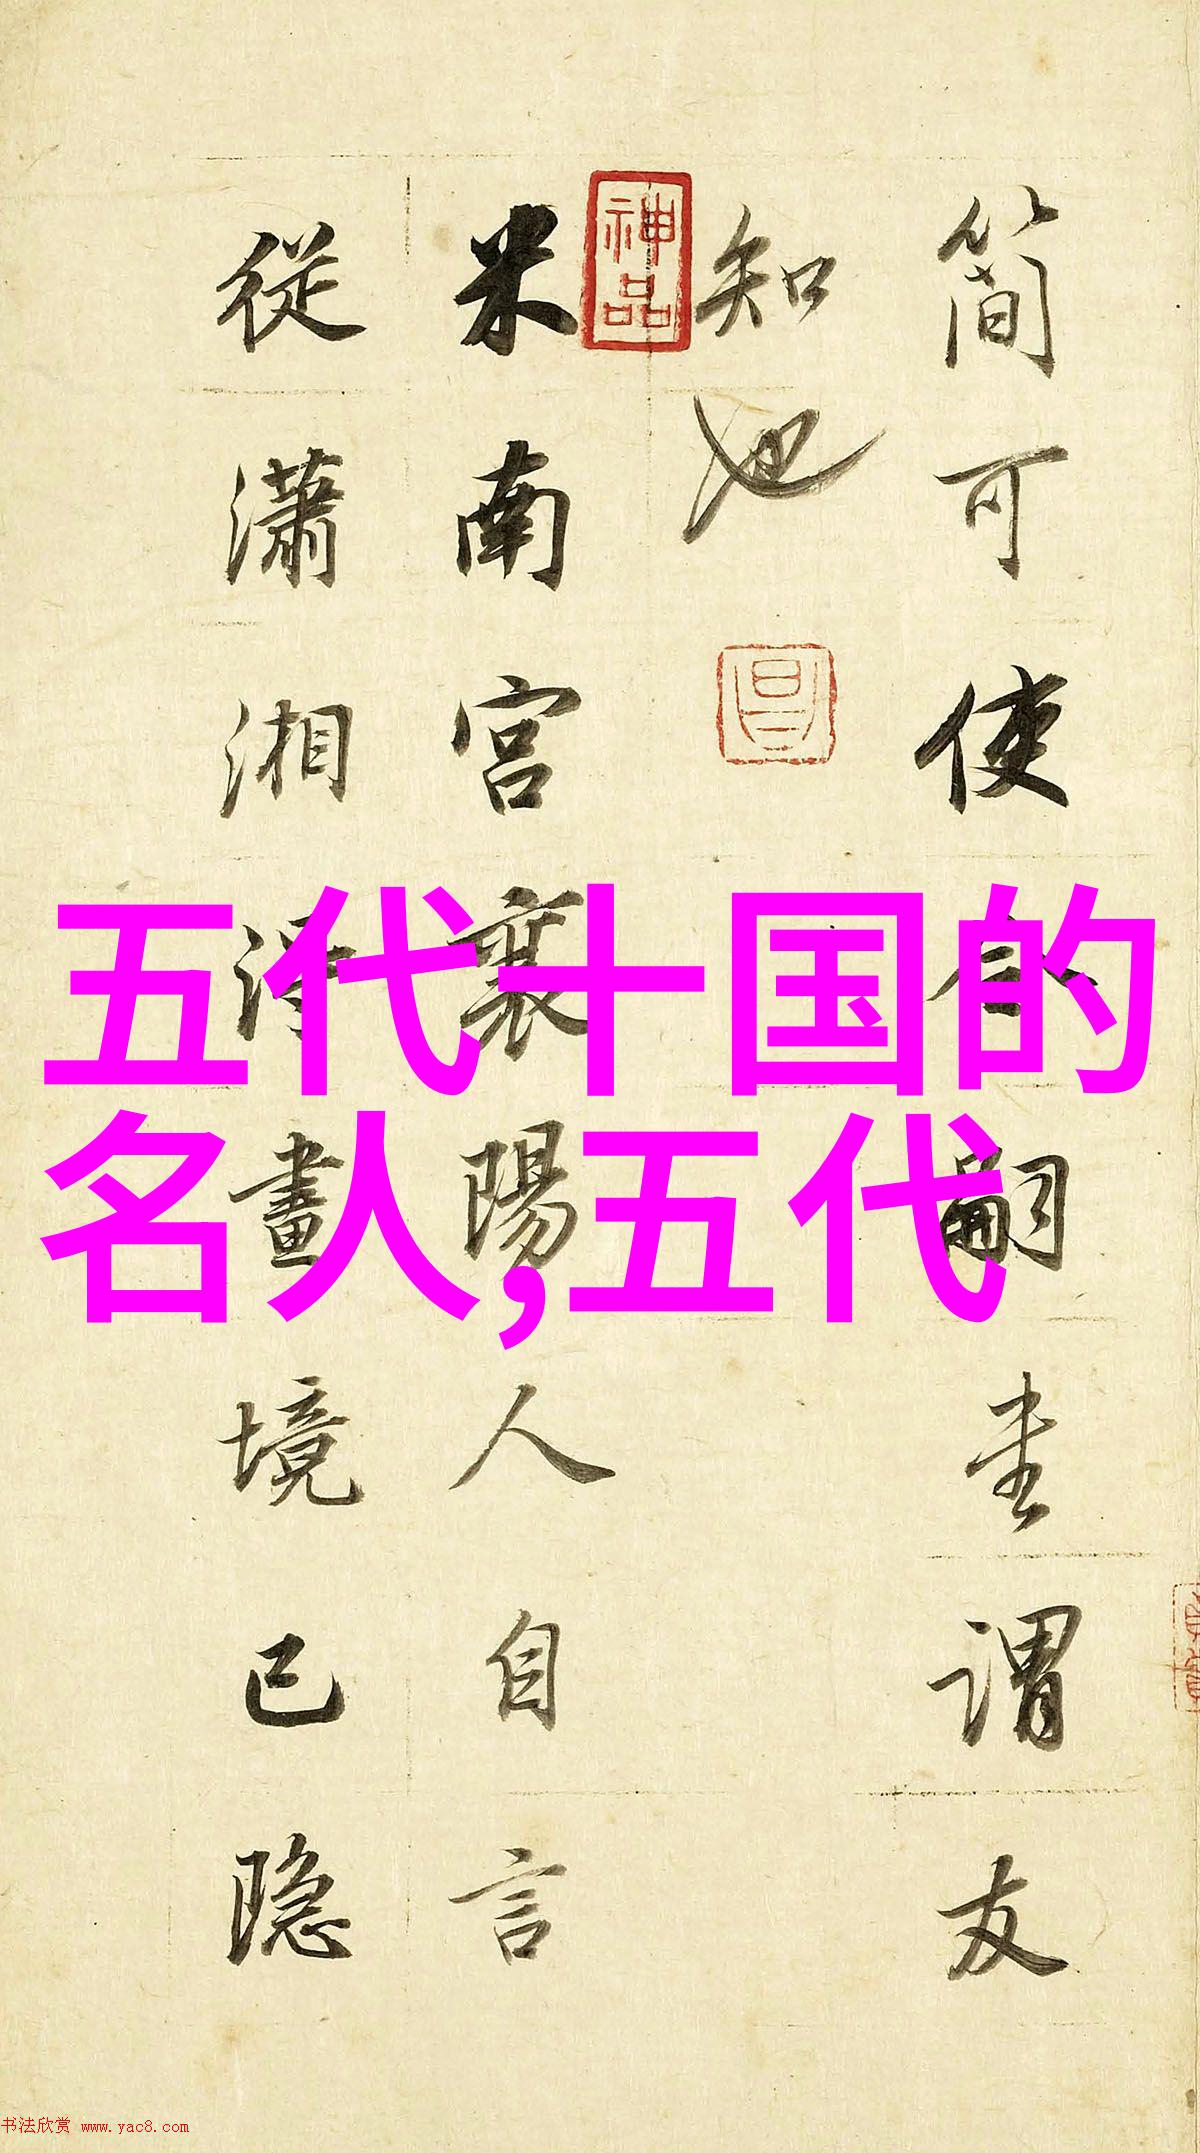 简可使令嗣謂友
知也
神品
米南宫襄陽人自言
從瀟湘得畫境已隐
五代十国的
名人,五代
书法欣赏 www.yac8.com